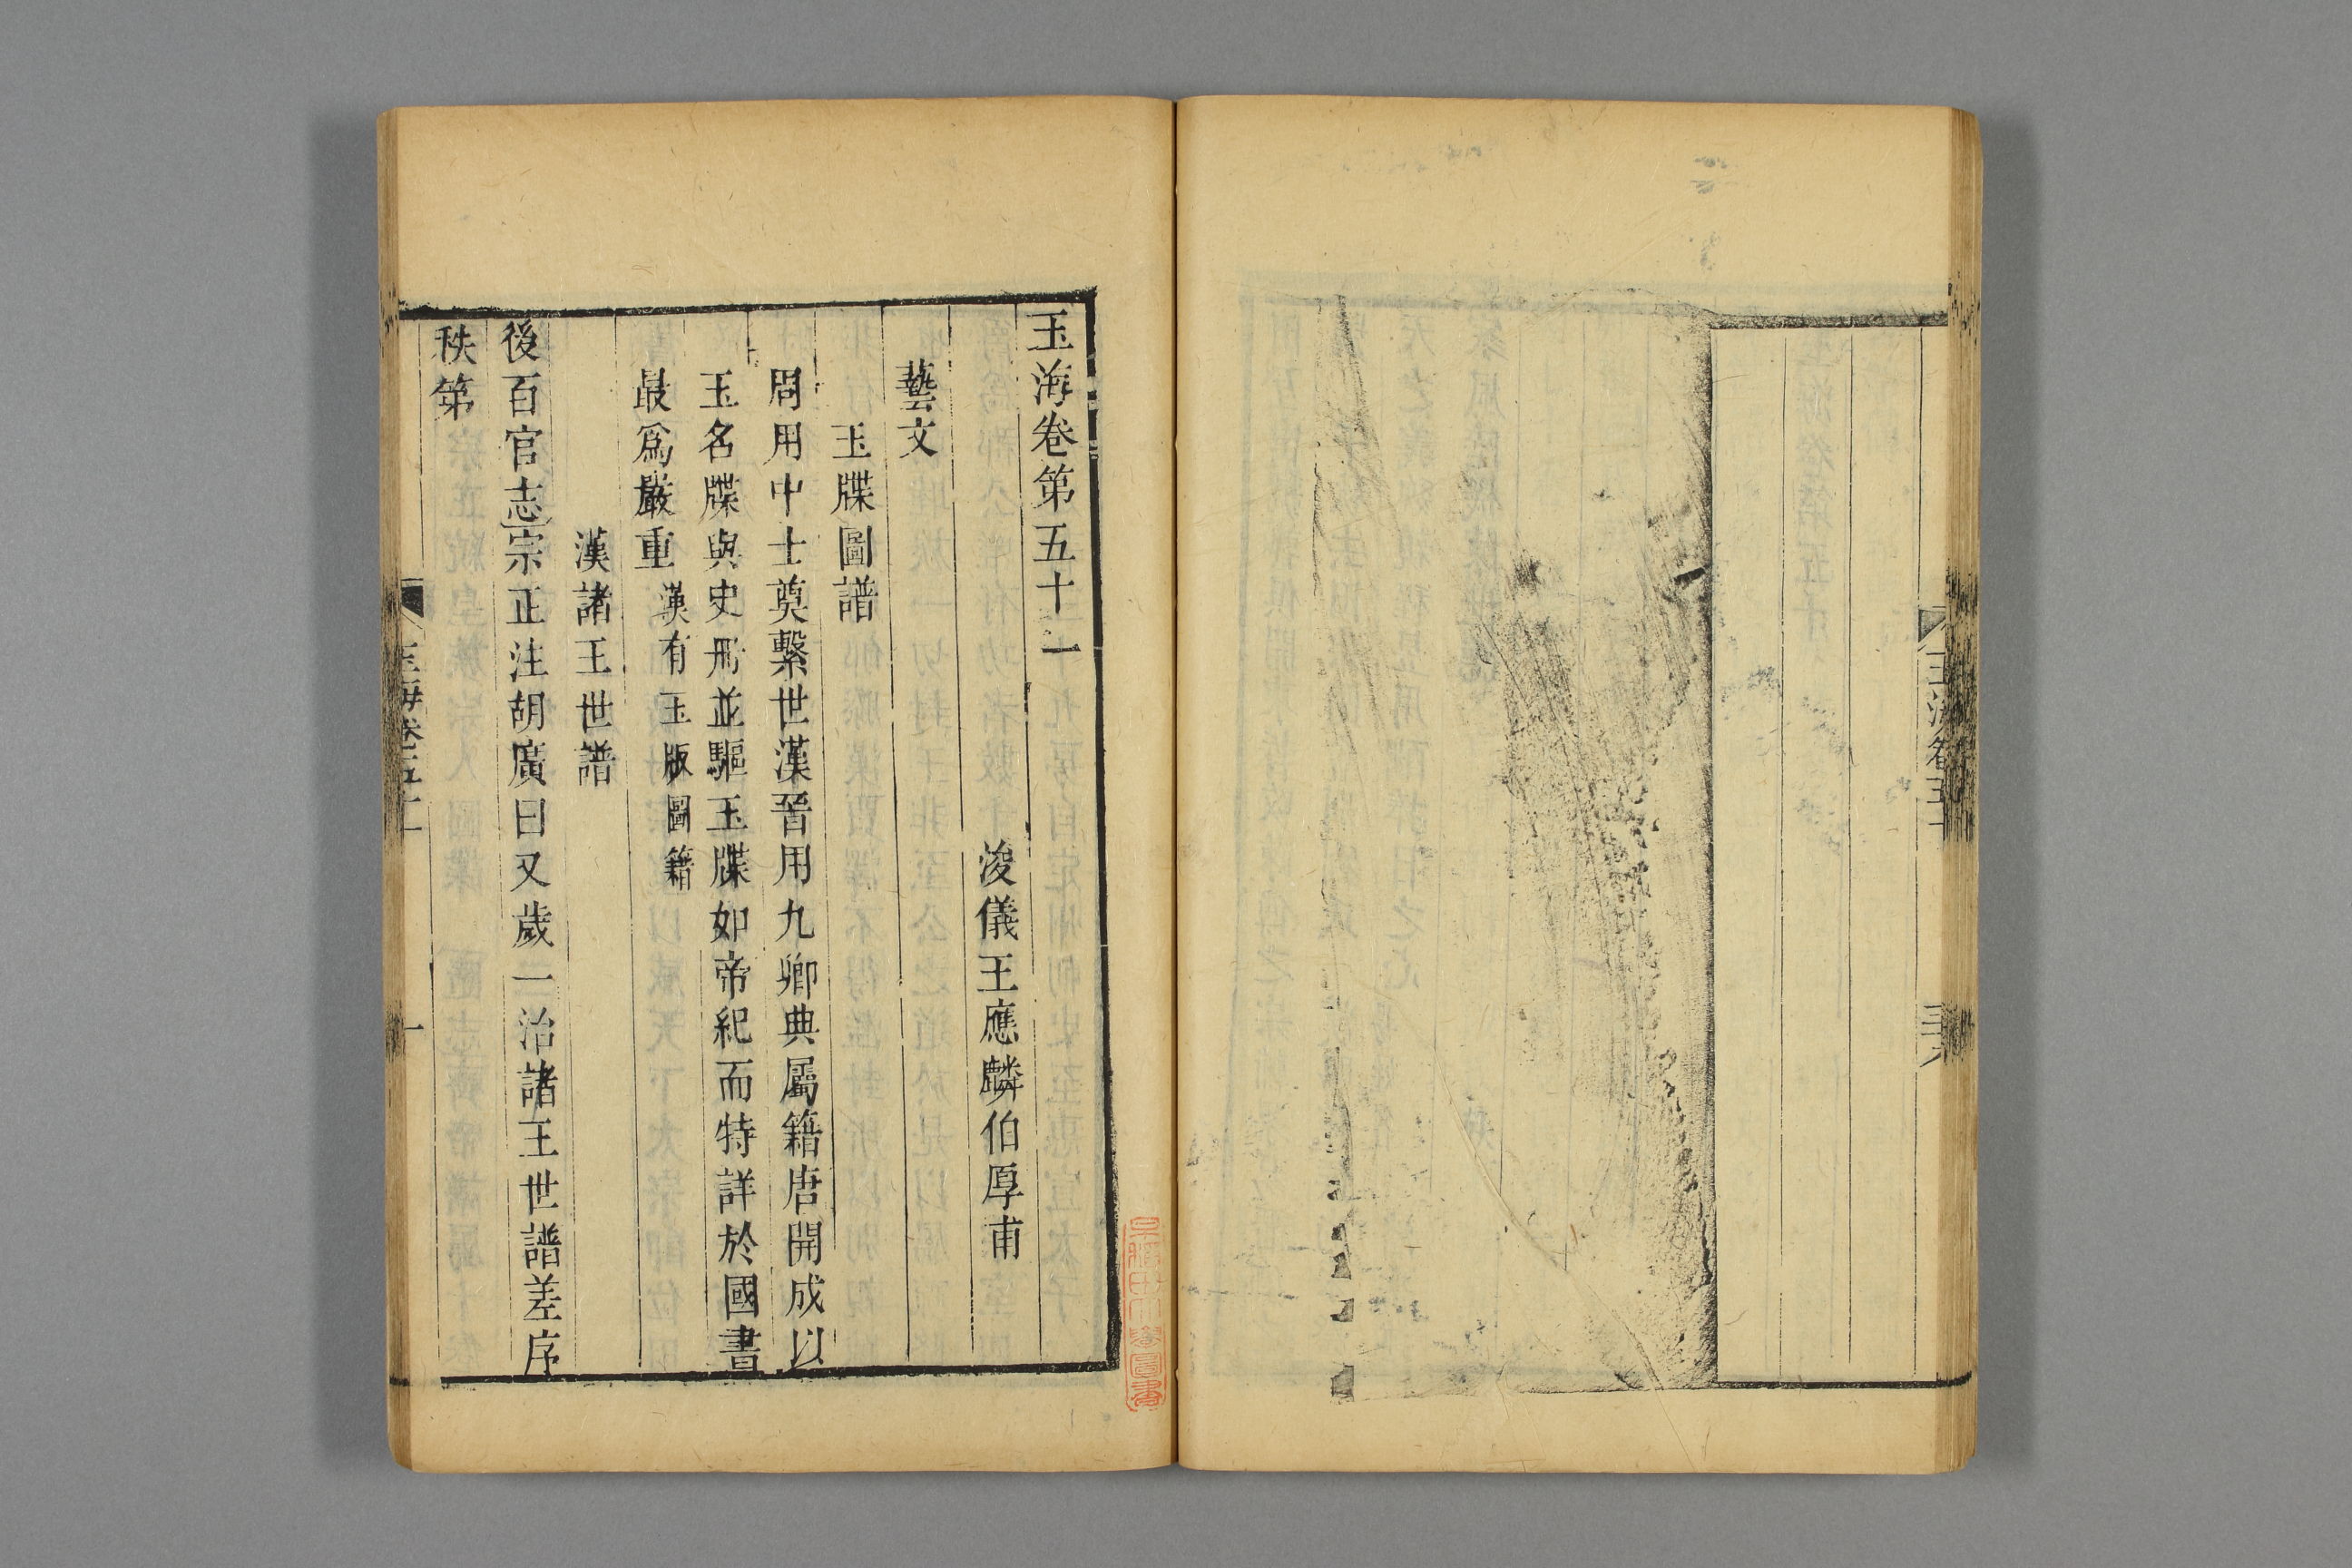 玉海卷第五十一
浚儀王應麟伯厚甫
藝文
玉牒圖譜
周用中士奠繫世漢晉用九卿典屬籍唐開成以
玉名牒與史冊並驅玉牒如帝紀而特詳於國書
最爲嚴重漢有玉版圖籍
漢諸王世譜
後百官志宗正注胡廣曰又歲一治諸王世譜差序
秩第
玉海卷五十一
一